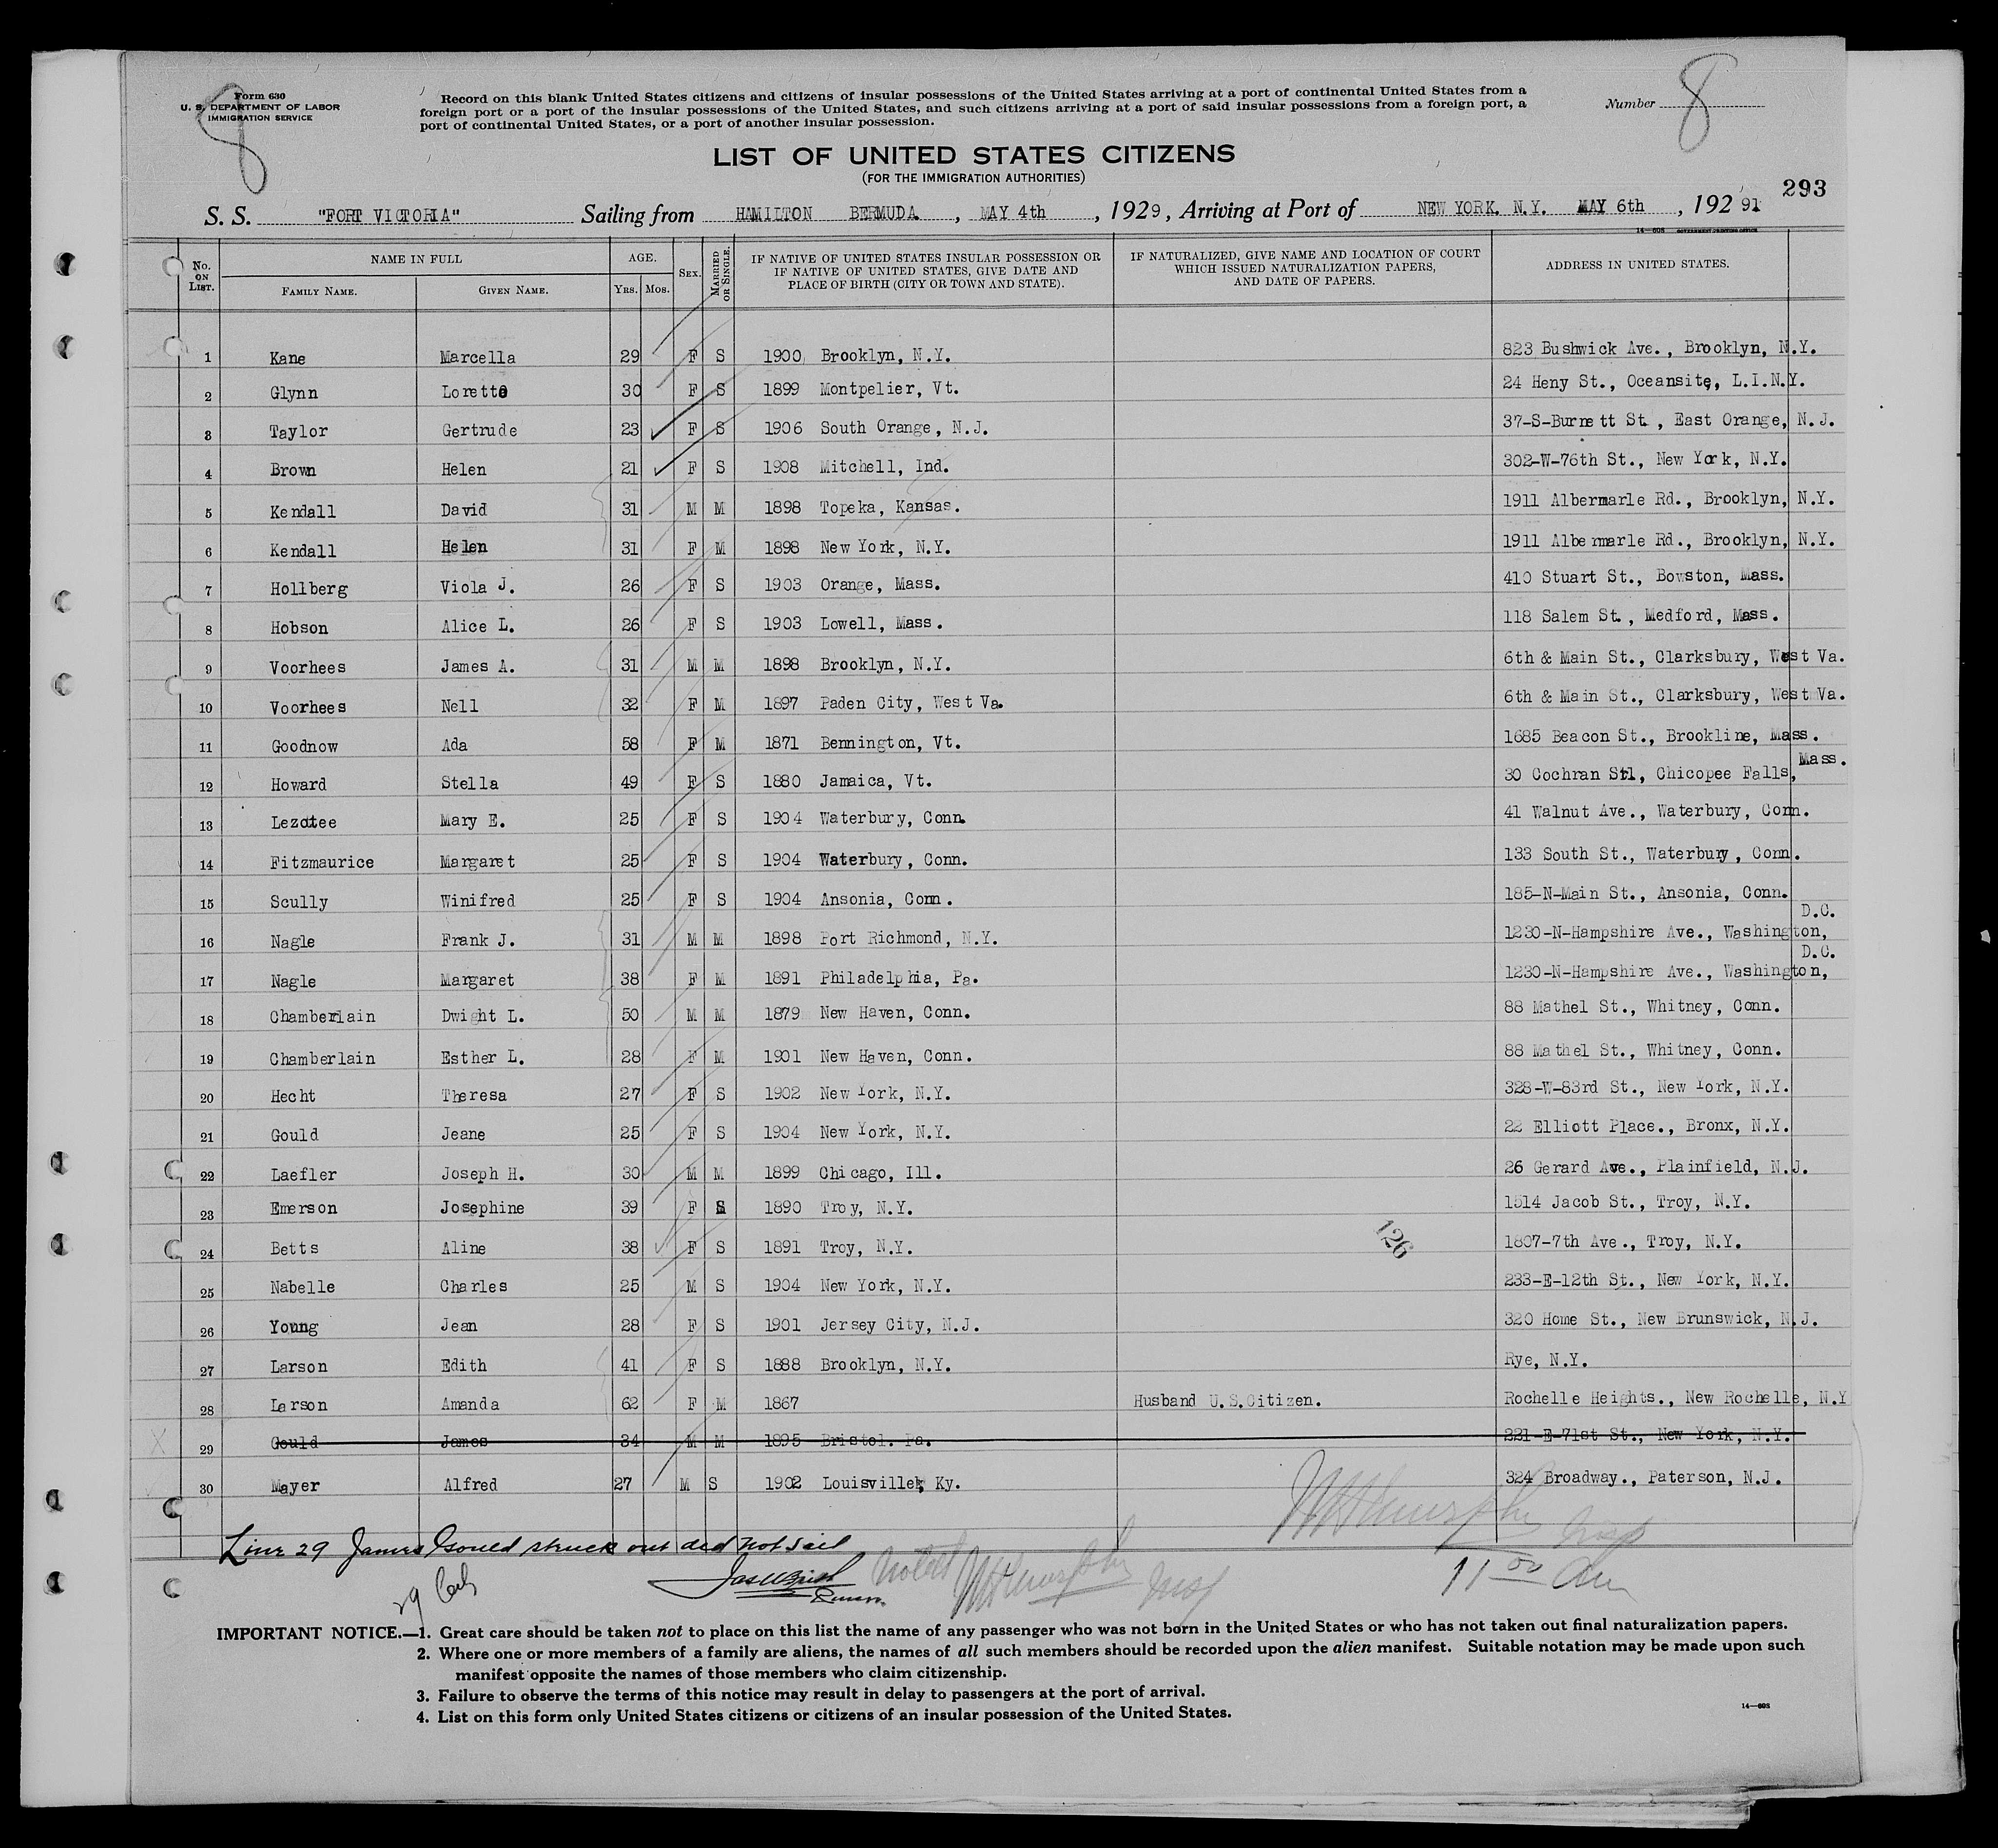 8
Form 630
U. S. DEPARTMENT OF LABOR
IMMIGRATION SERVICE
Record on this blank United States citizens and citizens of insular possessions of the United States arriving at a port of continental United States from a
foreign port or a port of the insular possessions of the United States, and such citizens arriving at a port of said insular possessions from a foreign port, a
port of continental United States, or a port of another insular possession.
Number 8
LIST OF UNITED STATES CITIZENS
(FOR THE IMMIGRATION AUTHORITIES)
293
S. S. "FORT VICTORIA" Sailing from HAMILTON BERMUDA , MAY 4th , 1929, Arriving at Port of NEW YORK. N.Y. MAY 6th , 192 91
14—608 GOVERNMENT PRINTING OFFICE
No. ON LIST. NAME IN FULL FAMILY NAME. GIVEN NAME. AGE. YRS. MOS. SEX. MARRIED OR SINGLE. IF NATIVE OF UNITED STATES INSULAR POSSESSION OR IF NATIVE OF UNITED STATES, GIVE DATE AND PLACE OF BIRTH (CITY OR TOWN AND STATE). IF NATURALIZED, GIVE NAME AND LOCATION OF COURT WHICH ISSUED NATURALIZATION PAPERS, AND DATE OF PAPERS. ADDRESS IN UNITED STATES.
1 Kane Marcella 29 F S 1900 Brooklyn, N.Y. 823 Bushwick Ave., Brooklyn, N.Y.
2 Glynn Lorette 30 F S 1899 Montpelier, Vt. 24 Heny St., Oceansite, L.I.N.Y.
3 Taylor Gertrude 23 F S 1906 South Orange, N.J. 37-S-Burnett St., East Orange, N.J.
4 Brown Helen 21 F S 1908 Mitchell, Ind. 302-W-76th St., New York, N.Y.
5 Kendall David 31 M M 1898 Topeka, Kansas. 1911 Albermarle Rd., Brooklyn, N.Y.
6 Kendall Helen 31 F M 1898 New York, N.Y. 1911 Albermarle Rd., Brooklyn, N.Y.
7 Hollberg Viola J. 26 F S 1903 Orange, Mass. 410 Stuart St., Bowston, Mass.
8 Hobson Alice L. 26 F S 1903 Lowell, Mass. 118 Salem St., Medford, Mass.
9 Voorhees James A. 31 M M 1898 Brooklyn, N.Y. 6th & Main St., Clarksbury, West Va.
10 Voorhees Nell 32 F M 1897 Paden City, West Va. 6th & Main St., Clarksbury, West Va.
11 Goodnow Ada 58 F M 1871 Bennington, Vt. 1685 Beacon St., Brookline, Mass.
12 Howard Stella 49 F S 1880 Jamaica, Vt. 30 Cochran Stl, Chicopee Falls, Mass.
13 Lezotee Mary E. 25 F S 1904 Waterbury, Conn. 41 Walnut Ave., Waterbury, Conn.
14 Fitzmaurice Margaret 25 F S 1904 Waterbury, Conn. 133 South St., Waterbury, Conn.
15 Scully Winifred 25 F S 1904 Ansonia, Conn. 185-N-Main St., Ansonia, Conn.
16 Nagle Frank J. 31 M M 1898 Port Richmond, N.Y. 1230-N-Hampshire Ave., Washington, D.C.
17 Nagle Margaret 38 F M 1891 Philadelphia, Pa. 1230-N-Hampshire Ave., Washington, D.C.
18 Chamberlain Dwight L. 50 M M 1879 New Haven, Conn. 88 Mathel St., Whitney, Conn.
19 Chamberlain Esther L. 28 F M 1901 New Haven, Conn. 88 Mathel St., Whitney, Conn.
20 Hecht Theresa 27 F S 1902 New York, N.Y. 328-W-83rd St., New York, N.Y.
21 Gould Jeane 25 F S 1904 New York, N.Y. 22 Elliott Place., Bronx, N.Y.
22 Laefler Joseph H. 30 M M 1899 Chicago, Ill. 26 Gerard Ave., Plainfield, N.J.
23 Emerson Josephine 39 F S 1890 Troy, N.Y. 1514 Jacob St., Troy, N.Y.
24 Betts Aline 38 F S 1891 Troy, N.Y. 126 1807-7th Ave., Troy, N.Y.
25 Nabelle Charles 25 M S 1904 New York, N.Y. 233-E-12th St., New York, N.Y.
26 Young Jean 28 F S 1901 Jersey City, N.J. 320 Home St., New Brunswick, N.J.
27 Larson Edith 41 F S 1888 Brooklyn, N.Y. Rye, N.Y.
28 Larson Amanda 62 F M 1867 Husband U.S.Citizen. Rochelle Heights., New Rochelle, N.Y
X 29 Gould James 34 M M 1895 Bristol. Pa. 221-E-71st St., New York, N.Y.
30 Mayer Alfred 27 M S 1902 Louisville, Ky. 324 Broadway., Paterson, N.J.
Line 29 James Gould struck out did not sail
Noted
11 00 am
29
IMPORTANT NOTICE.—1. Great care should be taken not to place on this list the name of any passenger who was not born in the United States or who has not taken out final naturalization papers.
2. Where one or more members of a family are aliens, the names of all such members should be recorded upon the alien manifest. Suitable notation may be made upon such
manifest opposite the names of those members who claim citizenship.
3. Failure to observe the terms of this notice may result in delay to passengers at the port of arrival.
4. List on this form only United States citizens or citizens of an insular possession of the United States.
14—608